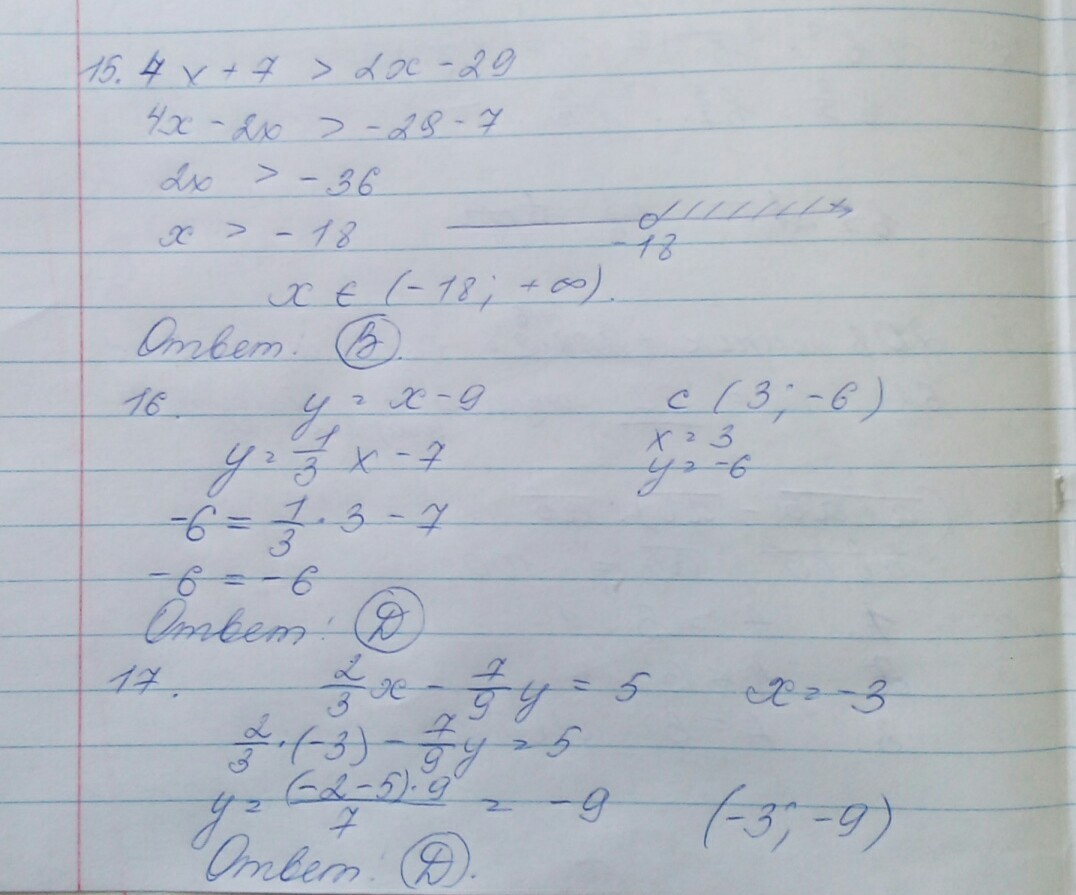 15. 4x + 7 > 2x - 29
4x - 2x > -29 - 7
2x > -36
x > -18
-18
x ∈ (-18; +∞).
Ответ: В.
16. y = x - 9 C (3; -6)
y = 1/3 x - 7 x = 3
y = -6
-6 = 1/3 · 3 - 7
-6 = -6
Ответ: D
17. 2/3 x - 7/9 y = 5 x = -3
2/3 · (-3) - 7/9 y = 5
y = (-2-5)·9/7 = -9 (-3; -9)
Ответ: D.